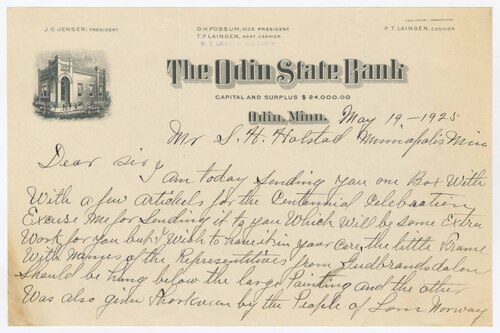 J. C. JENSEN, PRESIDENT
O. H. FOSSUM, VICE PRESIDENT
T. P. LAINGEN, ASST. CASHIER
P. T. LAINGEN, CASHIER
The Odin State Bank
CAPITAL AND SURPLUS $ 24,000.00
Odin, Minn. May 19-1925
Mr S. H. Holstad Minniapolis Minn
Dear sir,
I am today sending you one Box With
With a few articlels for the Centennial Celebration
Excuse Me for Sending it to you Which Will be some Extra
Work for you but I Wish to have it in your Care, the little Frame
With Names of the Representitives from Gudbrandsdalen
Should be hung below the large Painting and the other
Was also given by the People of Lom Norway